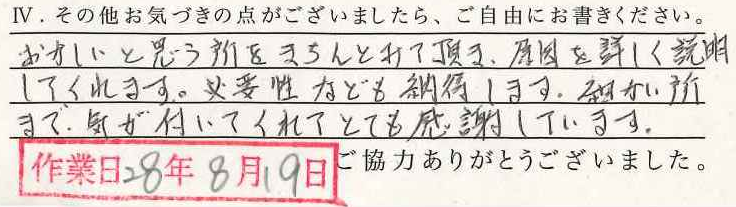 Ⅳ．その他お気づきの点がございましたら、ご自由にお書きください。
おかしいと思う所をきちんとみて頂き、原因を詳しく説明
してくれます。必要性なども納得します。細かい所
まで、気が付いてくれてとても感謝しています。
作業日28年8月19日 ご協力ありがとうございました。